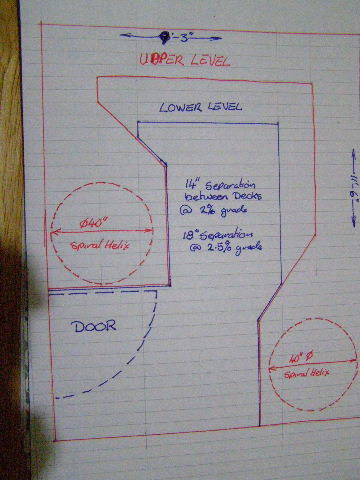 9'-3"
UPPER LEVEL
LOWER LEVEL
14" Separation
between Decks
@ 2% grade
18" Separation
@ 2.5% grade
Ø40"
Spiral Helix
DOOR
40" Ø
Spiral Helix